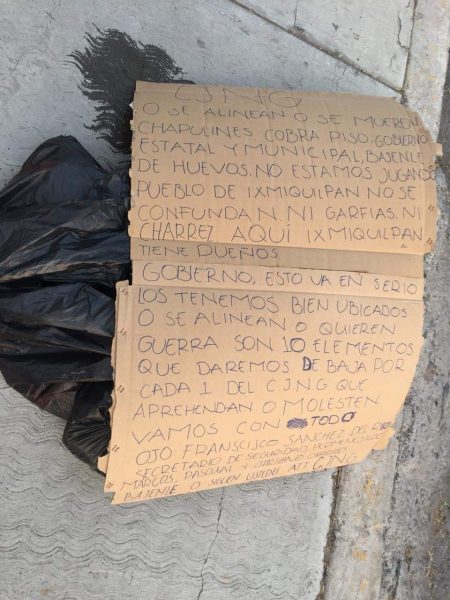 CJNG
O SE ALINEAN O SE MUEREN
CHAPULINES COBRA PISO. GOBIERNO
ESTATAL Y MUNICIPAL, BAJENLE
DE HUEVOS. NO ESTAMOS JUGANDO
PUEBLO DE IXMIQUILPAN NO SE
CONFUNDAN. NI GARFIAS. NI
CHARREZ AQUÍ IXMIQUILPAN
TIENE DUEÑOS.
GOBIERNO, ESTO VA EN SERIO
LOS TENEMOS BIEN UBICADOS
O SE ALINEAN O QUIEREN
GUERRA SON 10 ELEMENTOS
QUE DAREMOS DE BAJA POR
CADA 1 DEL CJNG QUE
APREHENDAN O MOLESTEN
VAMOS CON TODO
OJO FRANSCISCO SANCHEZ DEL
SECRETARIO DE SEGURIDAD
MARCOS, PASCUAL Y CIPRIANO CHARREZ
BAJENLE O SIGEN USTEDES ATT. CJNG